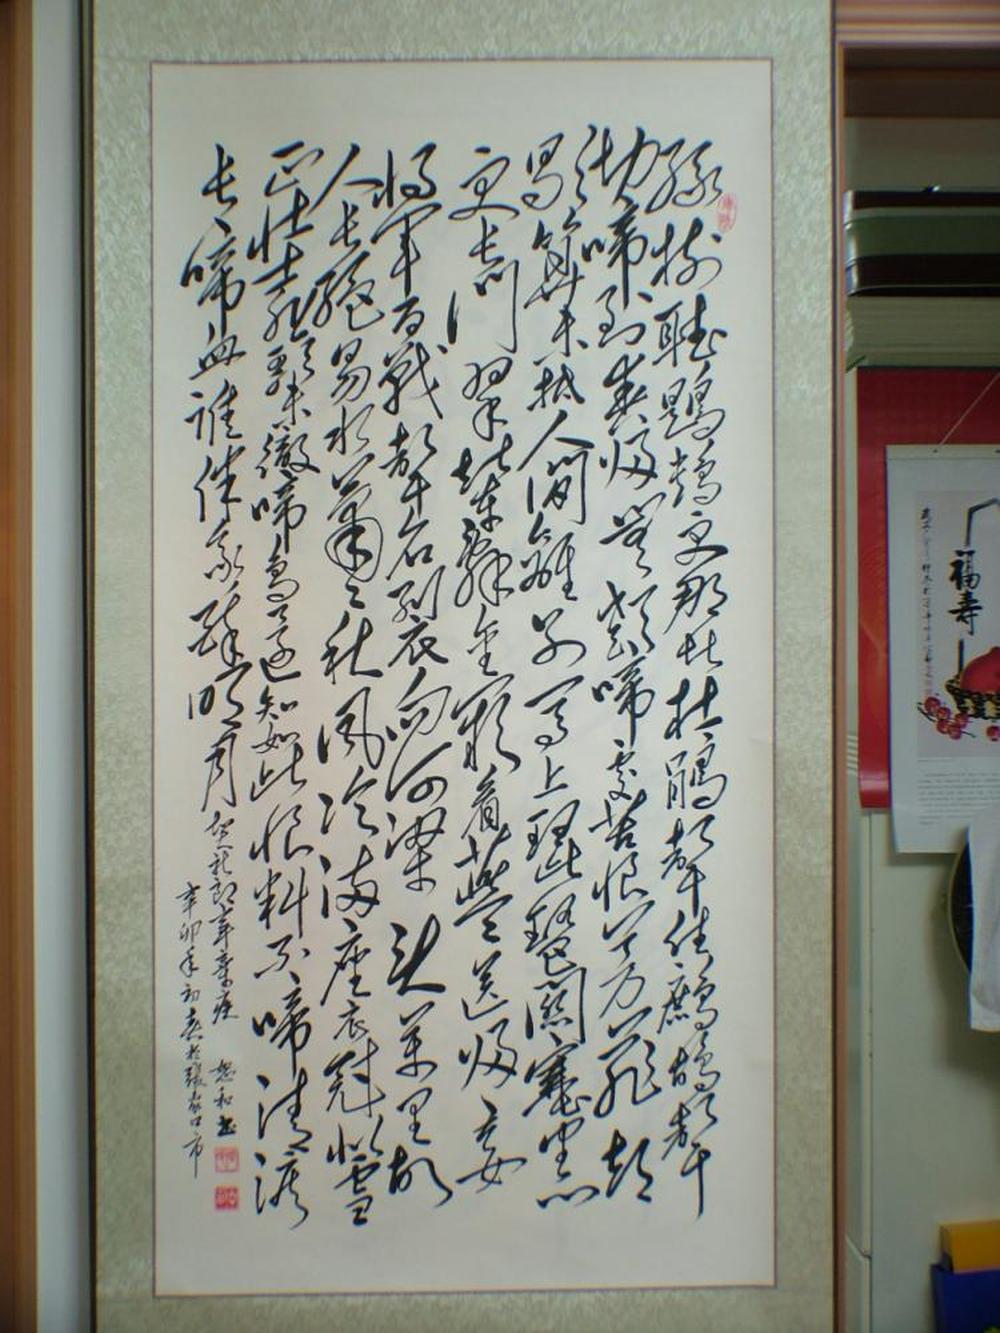 綠樹聽鵜鴂更那堪杜鵑聲住鷓鴣聲
切啼到春歸無啼處苦恨芳菲都
歇算未抵人間離別馬上琵琶關塞黑
更長門翠輦辭金闕看燕燕送歸妾
將軍百戰聲名裂向河梁頭萬里故
人長絕易水蕭蕭秋風冷滿座衣冠似雪
正壯士悲歌未徹啼鳥還知如此恨料不啼清淚
長啼血誰伴我醉明月 賀新郎辛棄疾 恕和書
辛卯年初春於張家口市
福寿